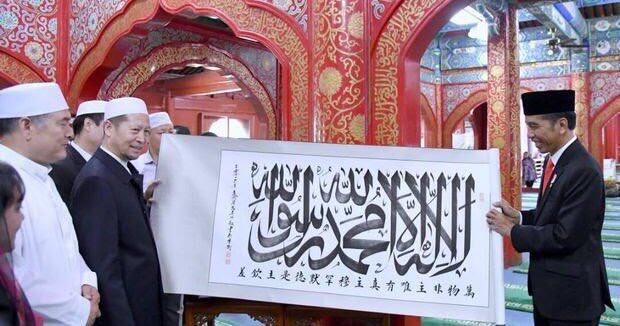 لا اله الا الله محمد رسول الله
萬物非主唯有真主穆罕默德是主欽差